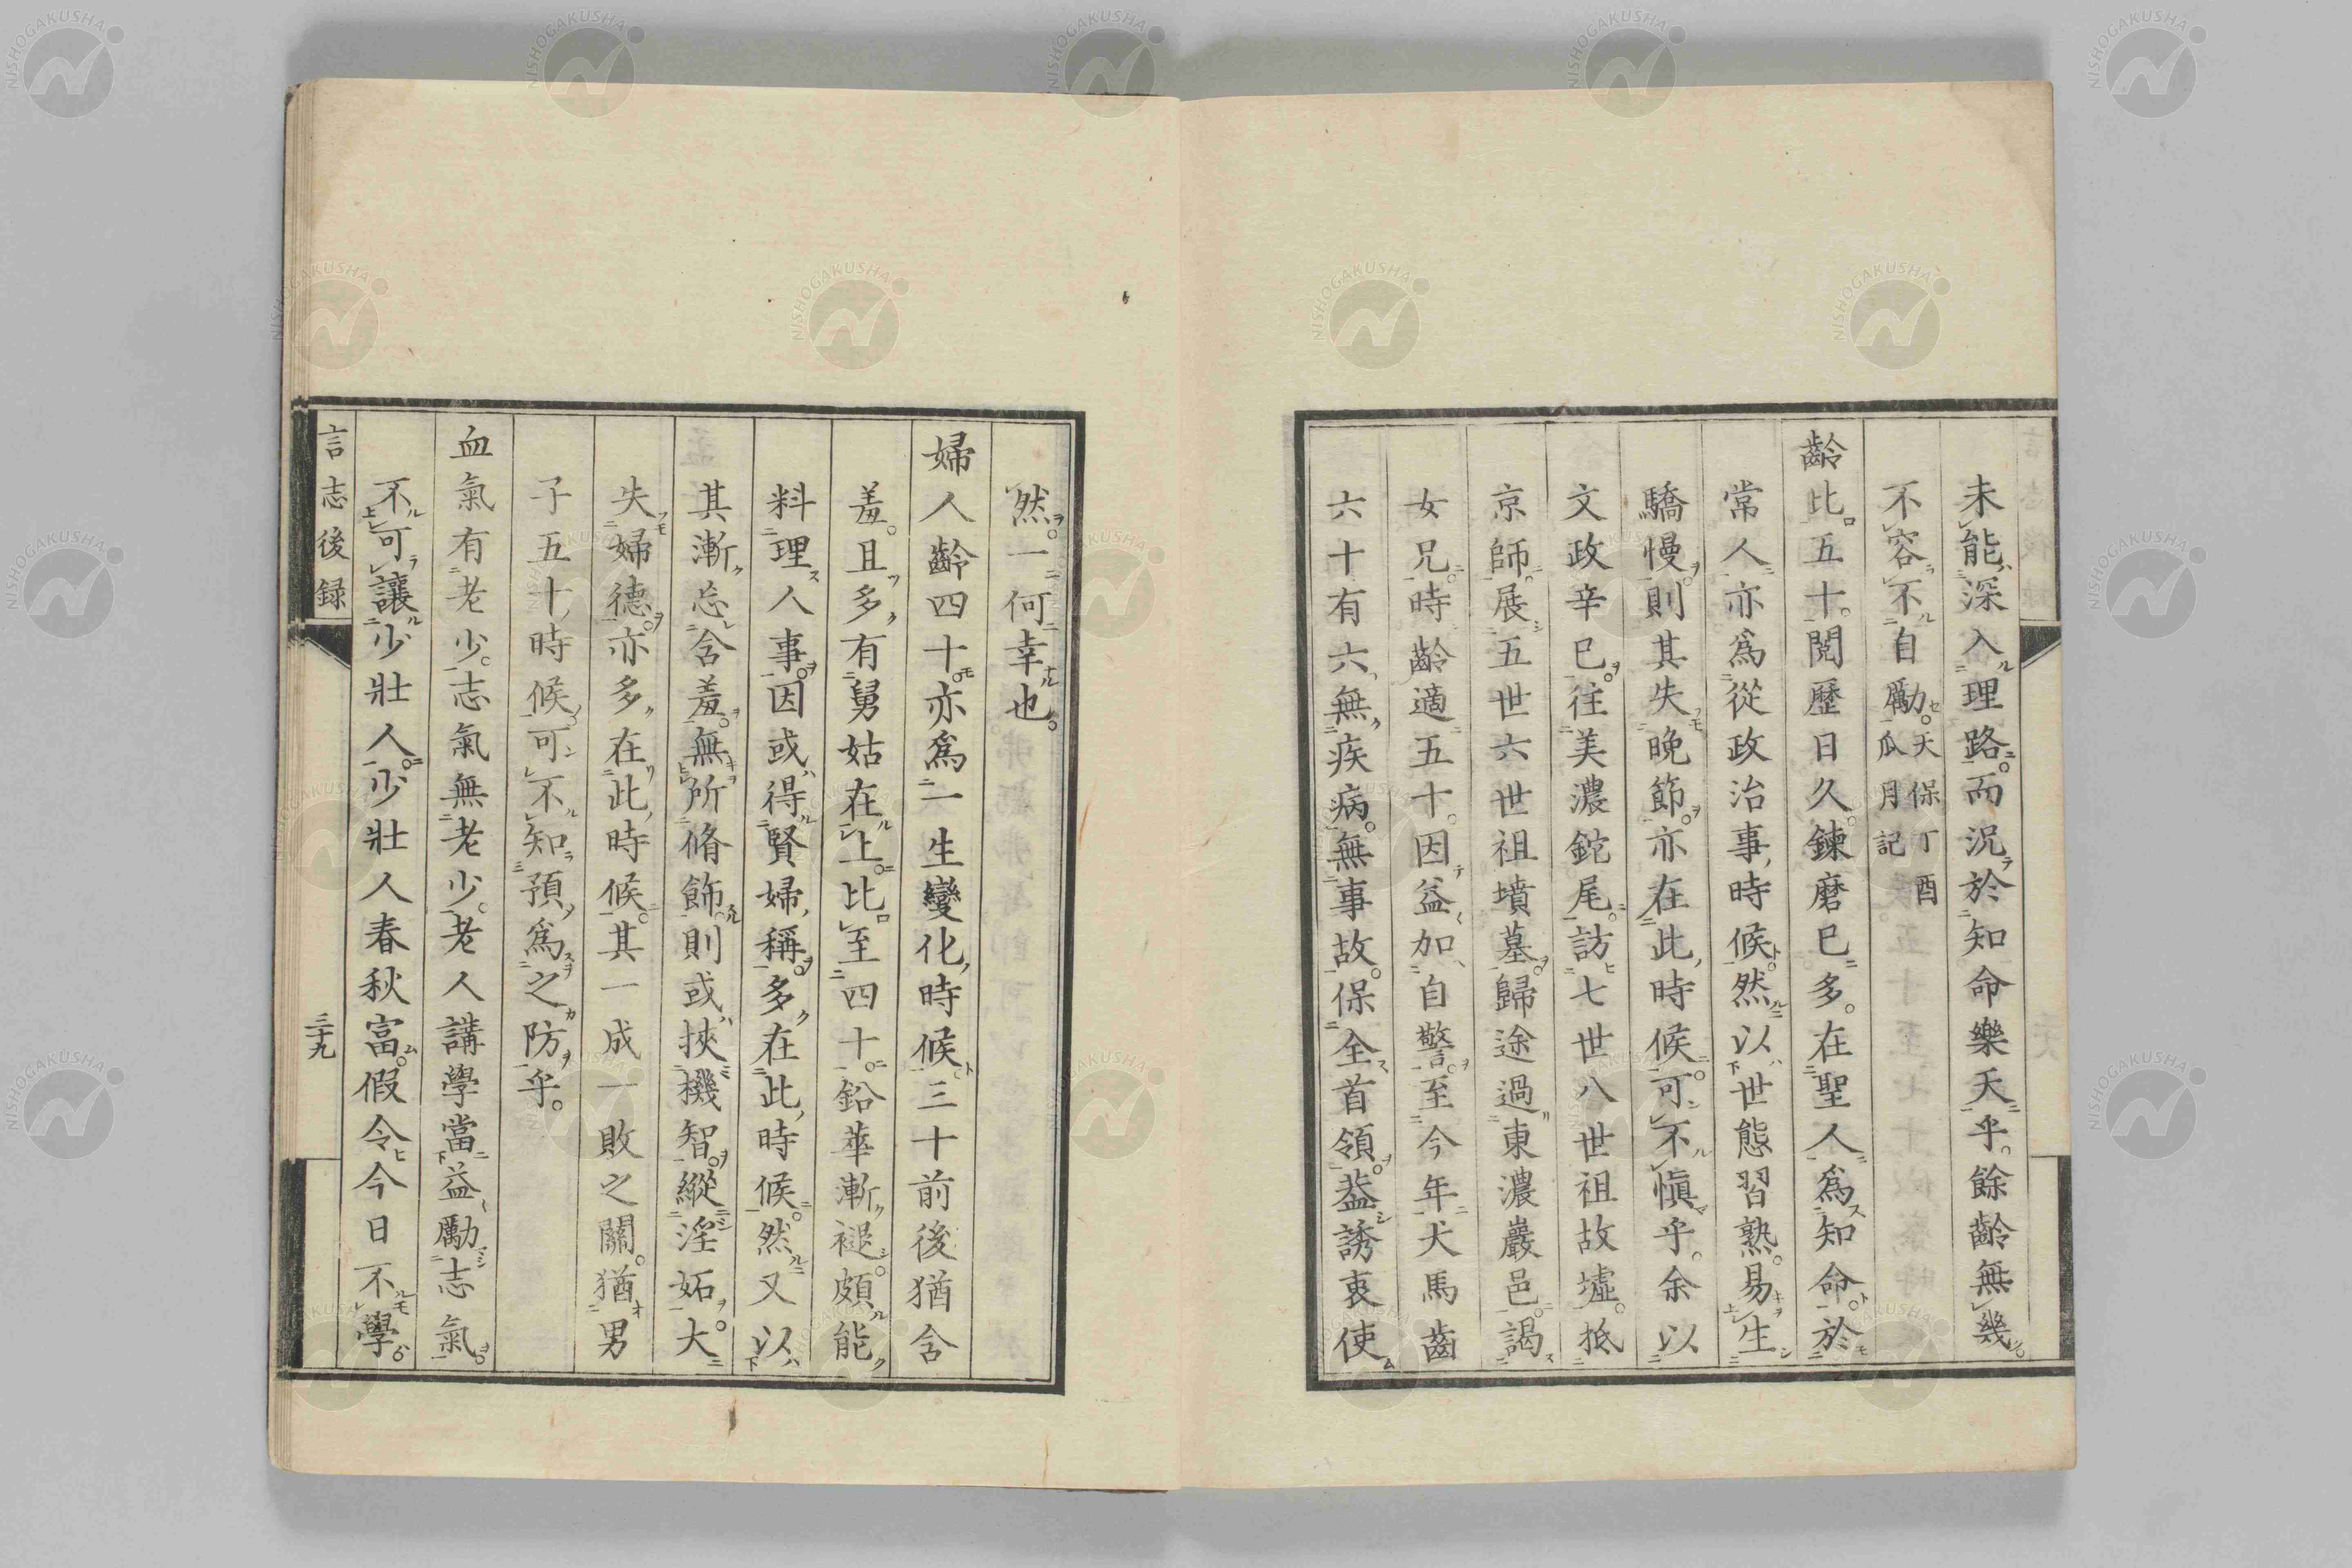 未能深入理路。而況於知命樂天乎。餘齡無幾。
不容不自勵。天保丁酉瓜月記
齡比五十。閲歷日久。鍊磨已多。在聖人爲知命。於
常人亦爲從政治事時候。然以世態習熟。易生
驕慢。則其失晩節。亦在此時候。可不愼乎。余以
文政辛巳。往美濃鉈尾。訪七世八世祖故墟。抵
京師。展五世六世祖墳墓。歸途過東濃巖邑。謁
女兄。時齡適五十。因益加自警。至今年犬馬齒
六十有六。無疾病。無事故。保全首領。葢誘衷使
然。一何幸也。
婦人齡四十。亦爲一生變化時候。三十前後猶含
羞。且多有舅姑在上。比至四十。鉛華漸褪。頗能
料理人事。因或得賢婦稱。多在此時候。然又以
其漸忘含羞。無所脩飾。則或挾機智。縱淫妬。大
失婦德。亦多在此時候。其一成一敗之關。猶男
子五十時候。可不知預爲之防乎。
血氣有老少。志氣無老少。老人講學當益勵志氣。
不可讓少壯人。少壯人春秋富。假令今日不學。
言志後録
三十九
NISHOGAKUSHA